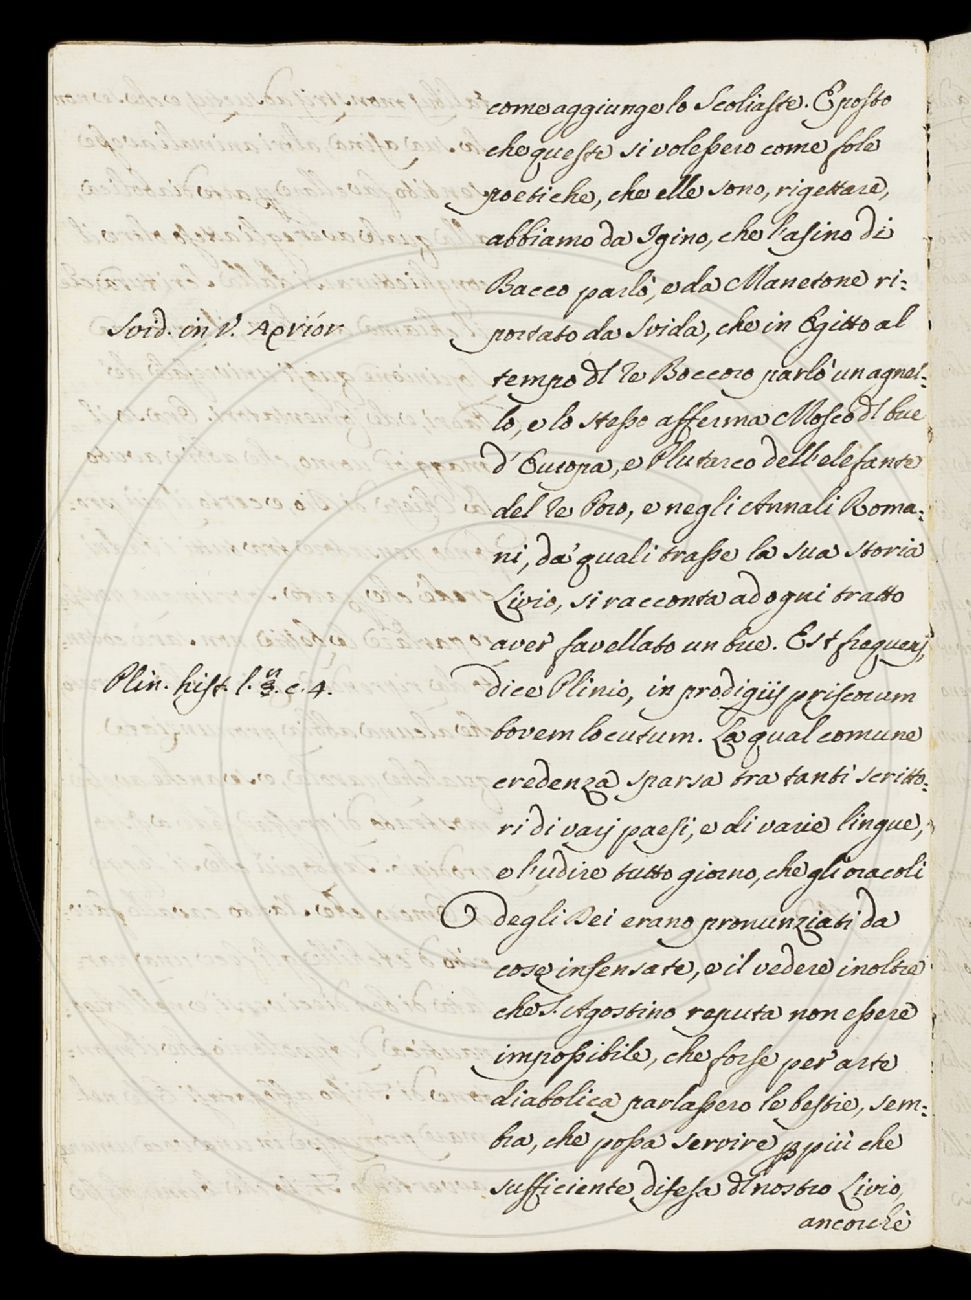 come aggiunge lo Scoliaste. E posto
che queste si volessero come fole
poetiche, che elle sono, rigettare,
abbiamo da Igino, che l'asino di
Bacco parlò, e da Manetone ri-
Svid. in V. Αρνίον
portato da Svida, che in Egitto al
tempo dl Re Boccoro parlò un agnel-
lo, e lo stesso afferma Mosco dl bue
d'Europa, e Plutarco dell'elefante
del Re Poro, e negli Annali Roma-
ni, da' quali trasse la sua storia
Livio, si racconta ad ogni tratto
aver favellato un bue. Est frequens,
Plin. hist. l. 8. c. 4.
dice Plinio, in prodigijs priscorum
bovem locutum. La qual comune
credenza sparsa tra tanti scritto-
ri di varj paesi, e di varie lingue,
e l'udire tutto giorno, che gli oracoli
degli Dei erano pronunziati da
cose insensate, e il vedere inoltre
che S. Agostino reputa non essere
impossibile, che forse per arte
diabolica parlassero le bestie, sem-
bra, che possa servire p più che
sufficiente difesa dl nostro Livio,
ancorchè